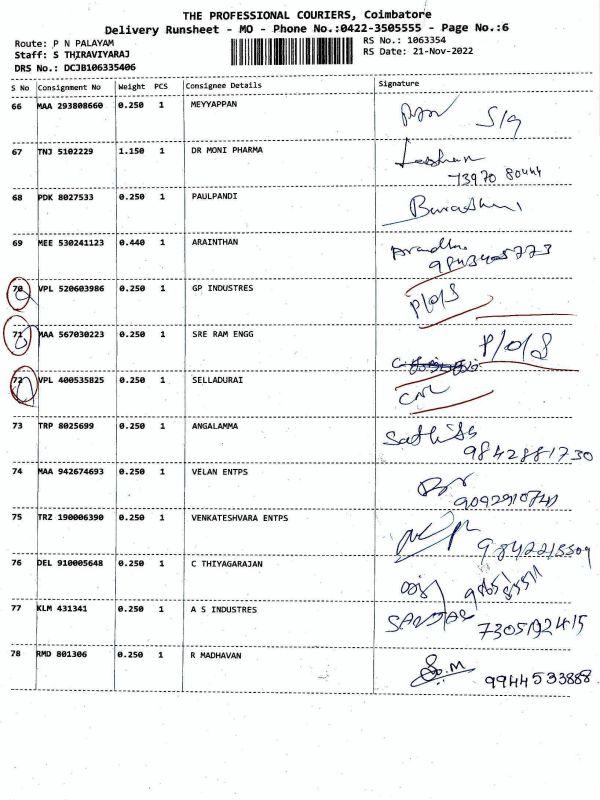 THE PROFESSIONAL COURIERS, Coimbatore
Delivery Runsheet - MO - Phone No.:0422-3505555 - Page No.:6
Route: P N PALAYAM RS No.: 1063354
Staff: S THIRAVIYARAJ RS Date: 21-Nov-2022
DRS No.: DCJB106335406
S No Consignment No Weight PCS Consignee Details Signature
66 MAA 293808660 0.250 1 MEYYAPPAN
67 TNJ 5102229 1.150 1 DR MONI PHARMA
73970 80444
68 PDK 8027533 0.250 1 PAULPANDI
69 MEE 530241123 0.440 1 ARAINTHAN
70 VPL 520603986 0.250 1 GP INDUSTRES P/O/S
71 MAA 567030223 0.250 1 SRE RAM ENGG P/O/S
72 VPL 400535825 0.250 1 SELLADURAI
73 TRP 8025699 0.250 1 ANGALAMMA
9842881730
74 MAA 942674693 0.250 1 VELAN ENTPS
9092910741
75 TRZ 190006390 0.250 1 VENKATESHVARA ENTPS
9842215509
76 DEL 910005648 0.250 1 C THIYAGARAJAN
77 KLM 431341 0.250 1 A S INDUSTRES
78 RMD 801306 0.250 1 R MADHAVAN
9944533888